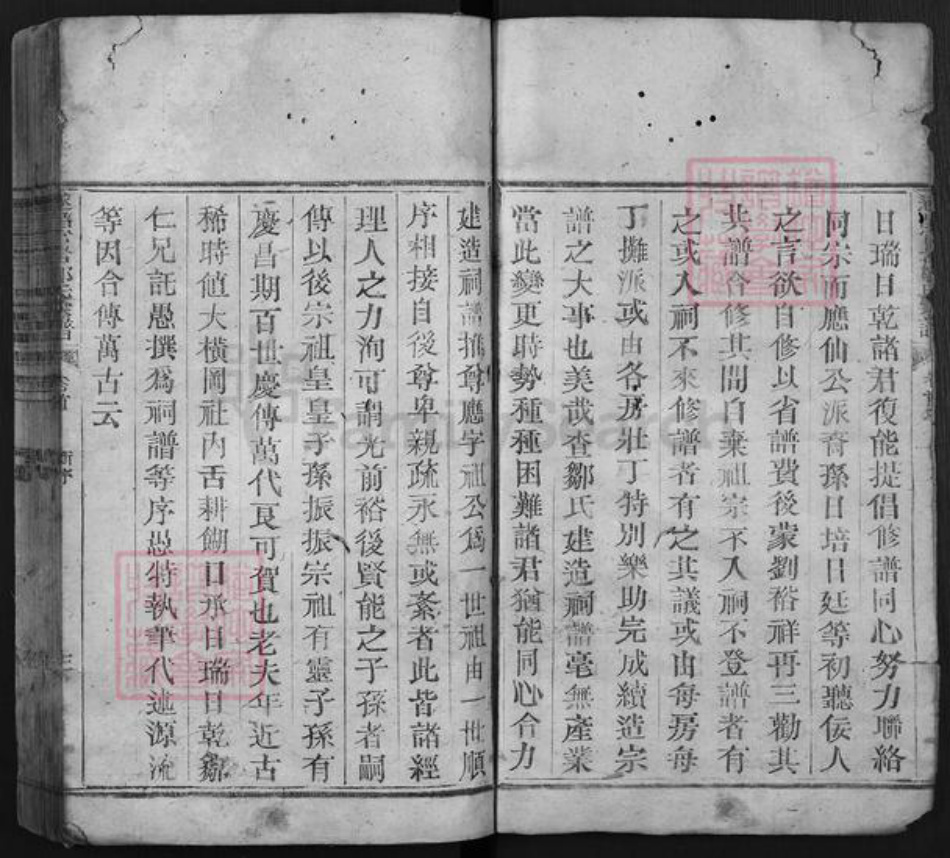 日瑞日乾諸君復能提倡修譜同心努力聯絡
同宗而應仙公派裔孫日培日廷等初聽佞人
之言欲自修以省譜費後蒙劉裕祥再三勸其
共譜合修其間自棄祖宗不入祠不登譜者有
之或入祠不來修譜者有之其議或由每房每
丁攤派或由各房壯丁特別樂助完成續造宗
譜之大事也美哉查鄒氏建造祠譜毫無產業
當此變更時勢種種困難諸君猶能同心合力
建造祠譜推尊應字祖公爲一世祖由一世順
序相接自後尊卑親疏永無或紊者此皆諸經
理人之力洵可謂光前裕後賢能之子孫者嗣
傳以後宗祖皇皇子孫振振宗祖有靈子孫有
慶昌期百世慶傳萬代良可賀也老夫年近古
稀時値大橫岡社內舌耕餬口承日瑞日乾鄒
仁兄託愚撰爲祠譜等序愆特執筆代述源流
等因合傳萬古云